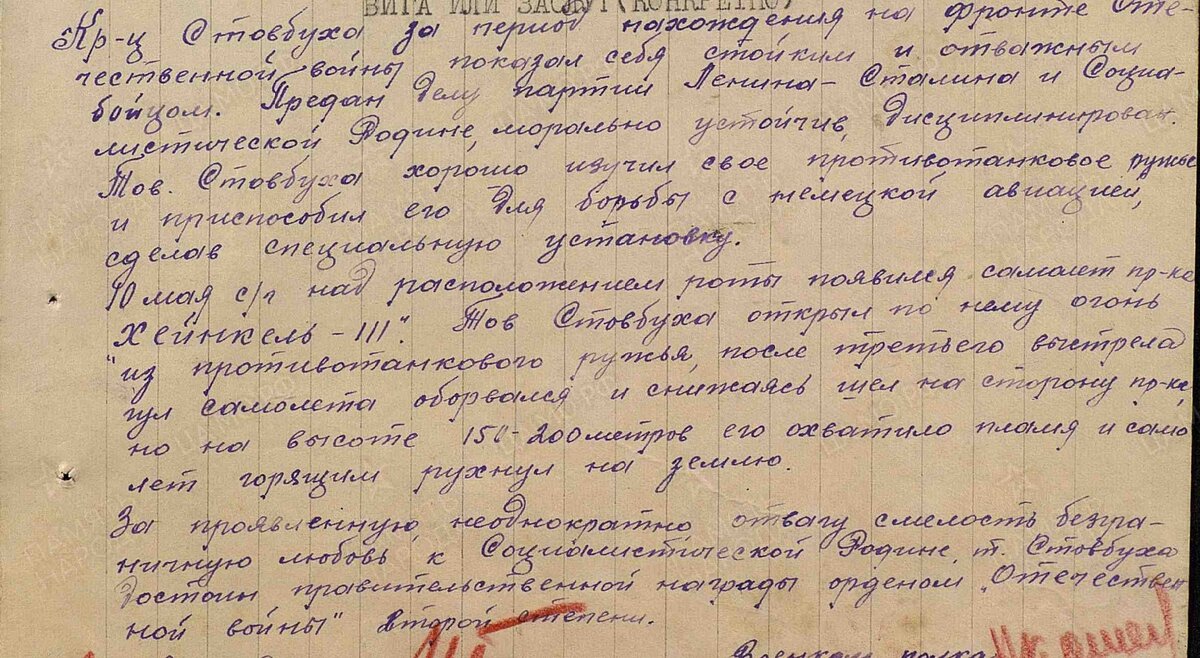 ВИГА ИЛИ ЗАСЛУГ (КОНКРЕТНО)
Кр-ц Стовбуха за период нахождения на фронте Оте-
чественной войны показал себя стойким и отважным
бойцом. Предан делу партии Ленина-Сталина и Социа-
листической Родине, морально устойчив, дисциплинирован.
Тов. Стовбуха хорошо изучил свое противотанковое ружье
и приспособил его для борьбы с немецкой авиацией,
сделав специальную установку.
10 мая с/г над расположением роты появился самолет пр-ка
"Хейнкель-111". Тов Стовбуха открыл по нему огонь
из противотанкового ружья, после третьего выстрела
гул самолета оборвался и снижаясь шел на сторону пр-ка,
но на высоте 150-200 метров его охватило пламя и само
лет горящим рухнул на землю.
За проявленную, неоднократно, отвагу, смелость безгра-
ничную любовь, к Социалистической Родине, т. Стовбуха
достоин правительственной награды орденом "Отечествен
ной войны" второй степени.
Военком полка